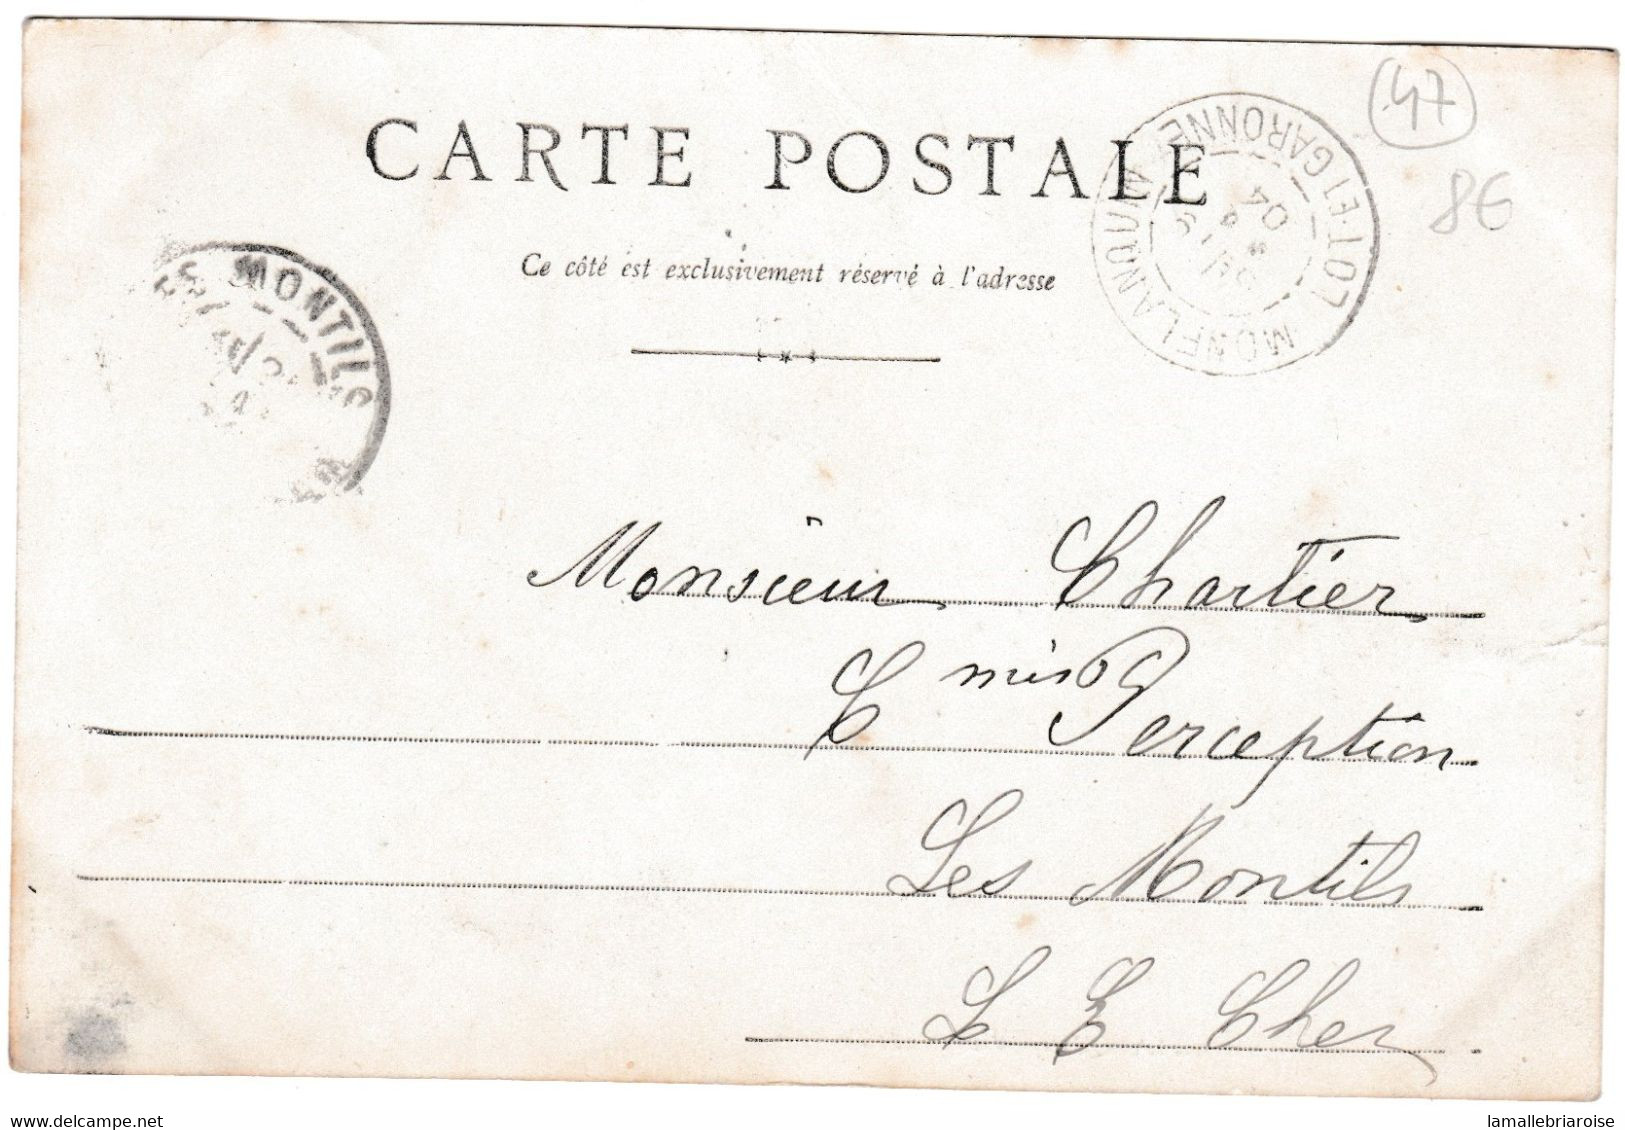 CARTE POSTALE
Ce côté est exclusivement réservé à l'adresse
MONFLANQUIN
LOT-ET-GARONNE
04
47
8€
MONTILS
Monsieur Chartier
C mis Perception
Les Montils
L E Cher
delcampe.net
lamallebriaroise